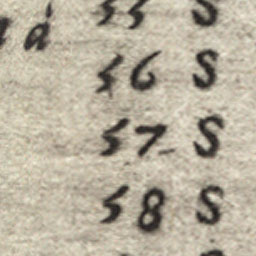 á 55 S
56 S
57 S
58 S